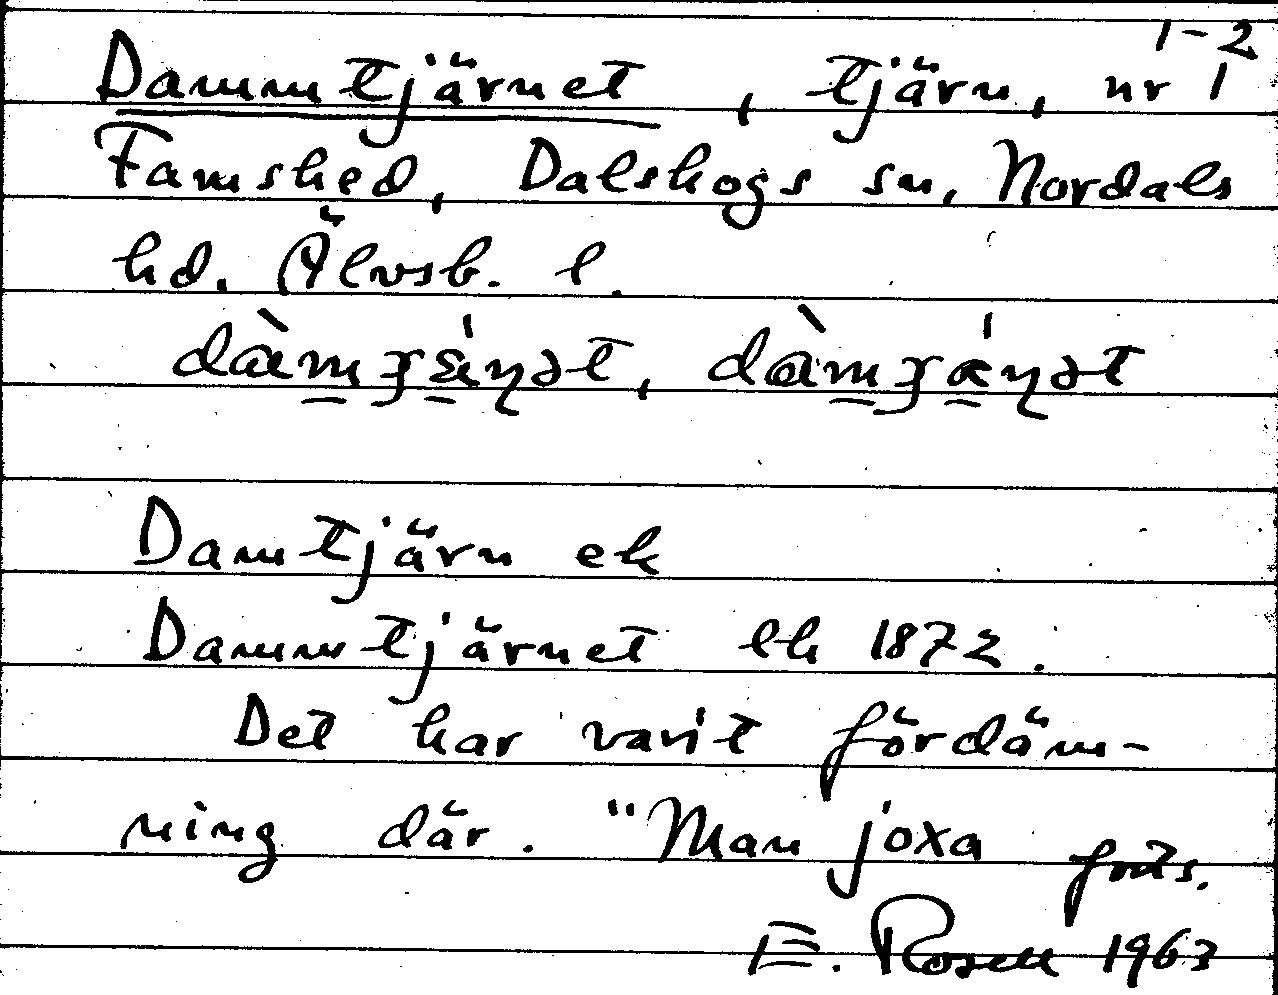 1-2
Dammtjärnet, tjärn, nr 1
Famshed, Dalskogs sn, Nordals
hd. Älvsb. l.
Damtjärn ek
Dammtjärnet lk 1872.
Det har varit fördäm-
ning där. "Man joxa forts.
E. Rosell 1963